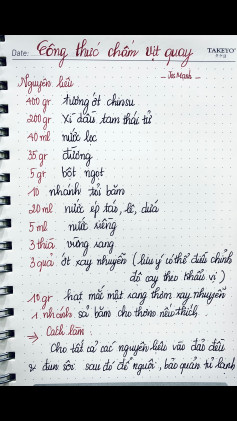 Date: Công thức chấm vịt quay TAKEYO
- Jis Mark -
Nguyên liệu
400 gr tương ớt chinsu
200 gr xì dầu tam thái tử
40 ml nước lọc
35 gr đường
5 gr bột ngọt
10 nhánh tỏi băm
20 ml nước ép táo, lê, dứa
5 ml nước riềng
3 thìa vừng rang
3 quả ớt xay nhuyễn (lưu ý có thể điều chỉnh
độ cay theo khẩu vị)
10 gr hạt mắc mật rang thơm xay nhuyễn
1 nhánh sả băm cho thơm nếu thích
→ Cách làm:
Cho tất cả các nguyên liệu vào đảo đều
& đun sôi sau đó để nguội, bảo quản tủ lạnh